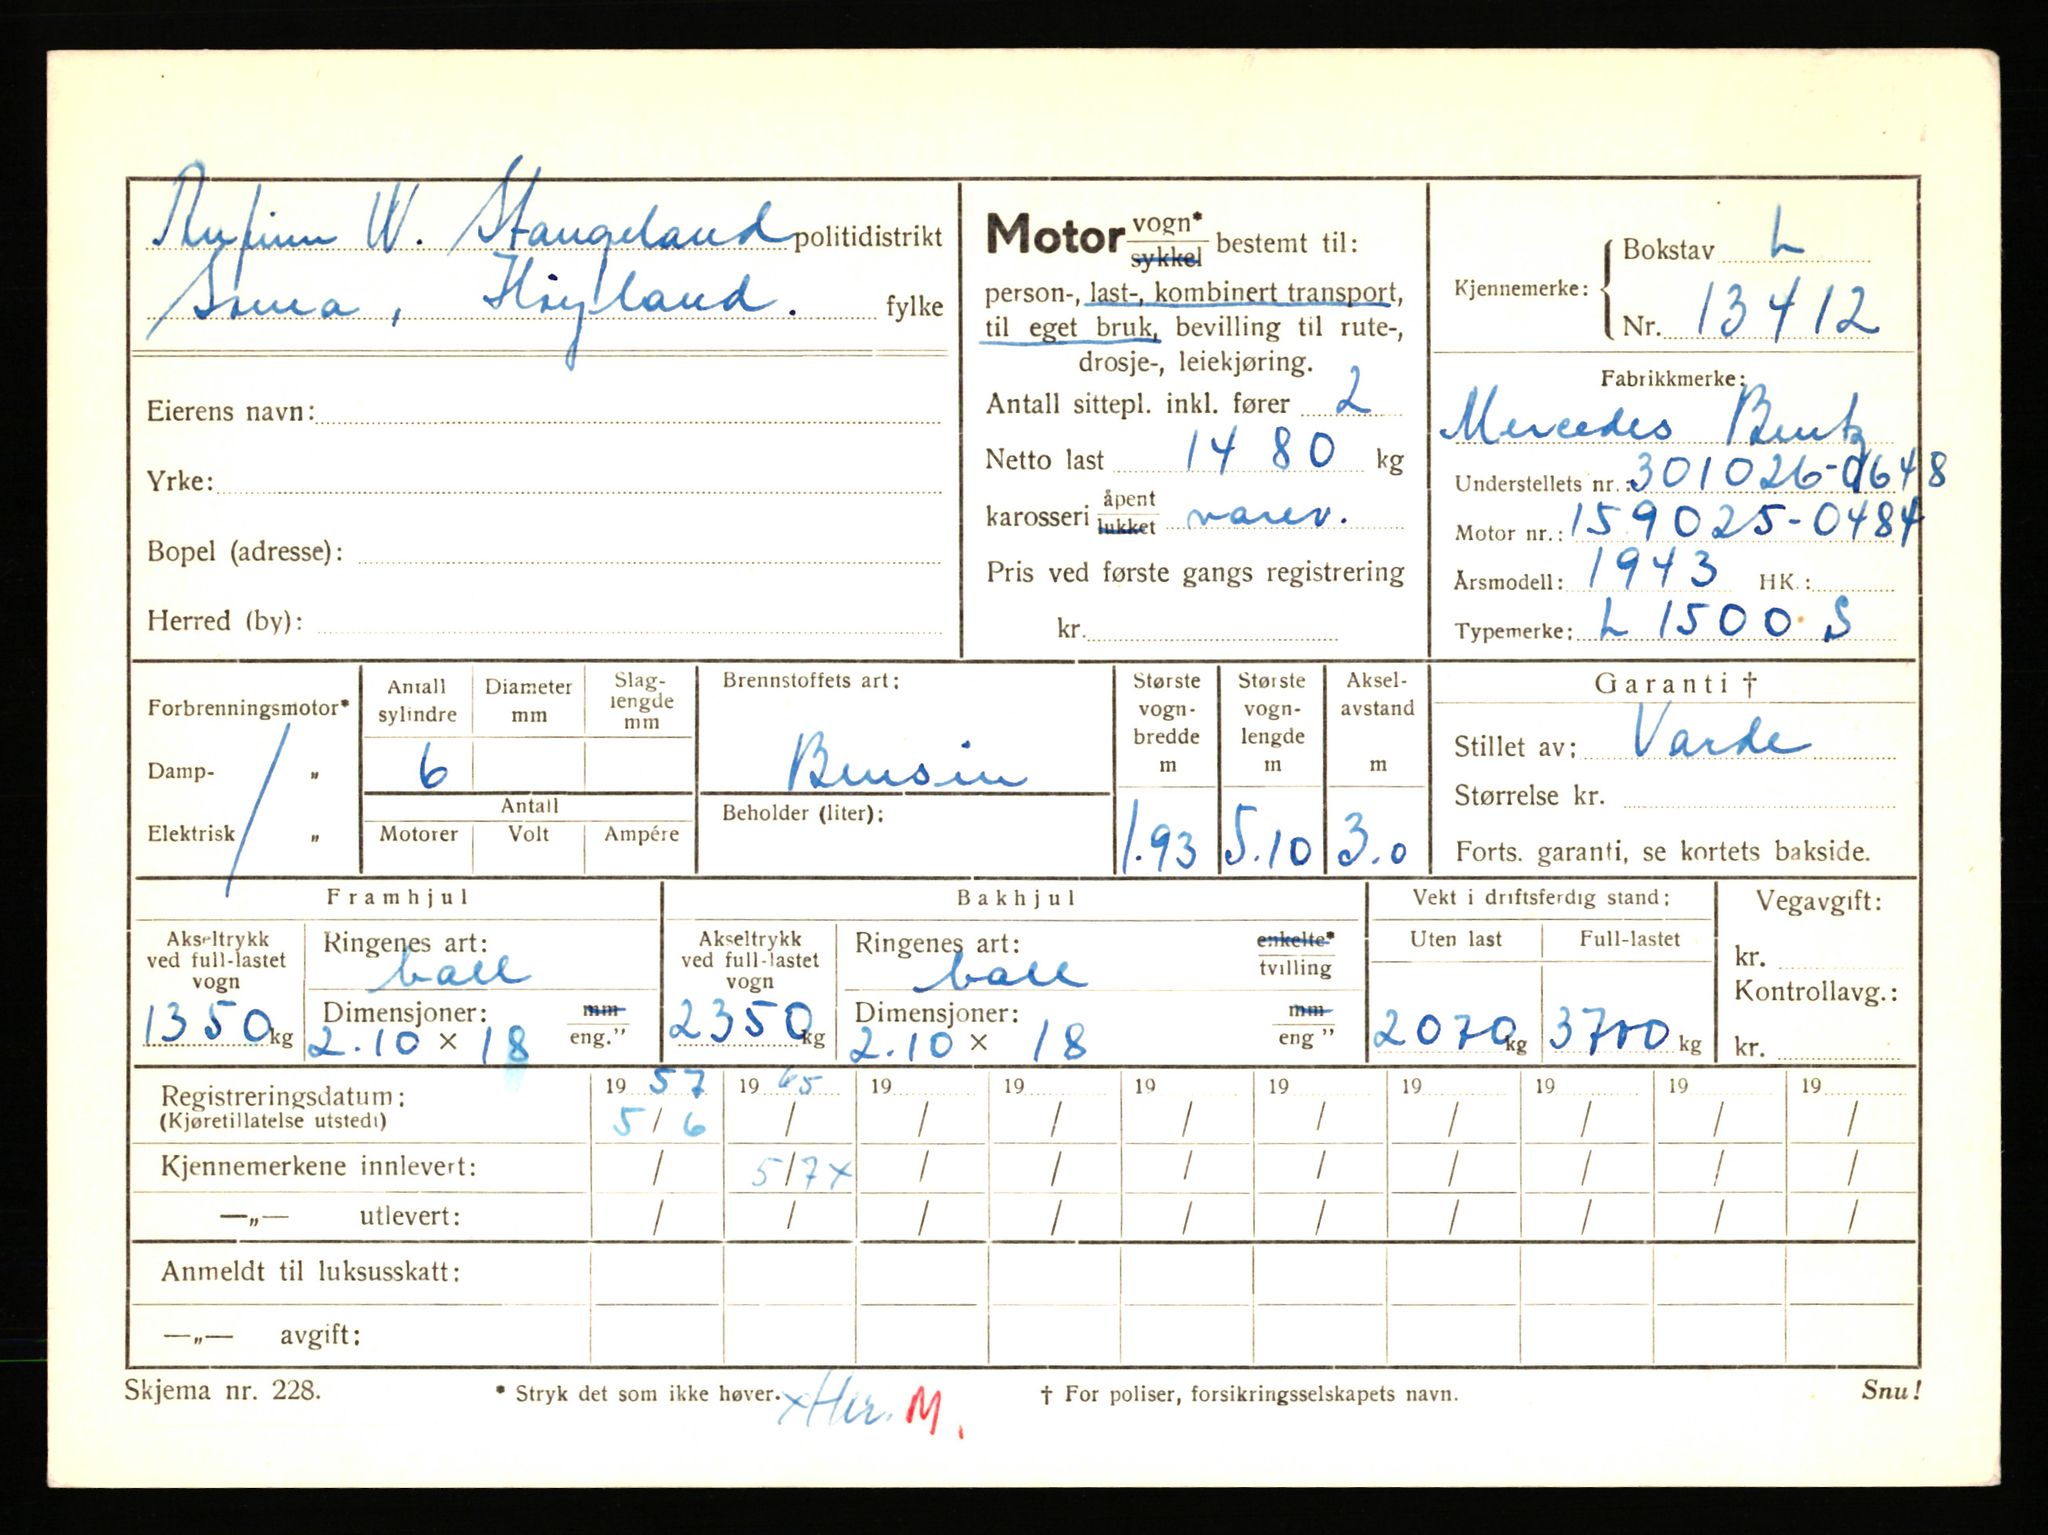 W. Stangeland politidistrikt
Soma, Høyland. fylke
Eierens navn:
Yrke:
Bopel (adresse):
Herred (by):
Motor vogn* sykkel bestemt til:
person-, last-, kombinert transport,
til eget bruk, bevilling til rute-,
drosje-, leiekjøring.
Antall sittepl. inkl. fører 2
Netto last 1480 kg
karosseri åpent lukket varev.
Pris ved første gangs registrering
kr.
Kjennemerke: Bokstav L
Nr. 13412
Fabrikkmerke:
Mercedes Bentz
Understellets nr.: 301026-0648
Motor nr.: 159025-0484
Årsmodell: 1943 HK.:
Typemerke: L 1500 S
Forbrenningsmotor*
Damp- "
Elektrisk "
Antall sylindre
6
Diameter mm
Slaglengde mm
Antall
Motorer Volt Ampére
Brennstoffets art:
Bensin
Beholder (liter):
Største vognbredde m
1.93
Største vognlengde m
5.10
Akselavstand m
3.0
Garanti †
Stillet av: Varde
Størrelse kr.
Forts. garanti, se kortets bakside.
Framhjul
Akseltrykk ved full-lastet vogn
1350 kg
Ringenes art:
ball
Dimensjoner: mm eng."
2.10 × 18
Bakhjul
Akseltrykk ved full-lastet vogn
2350 kg
Ringenes art: enkelte* tvilling
ball
Dimensjoner: mm eng "
2.10 × 18
Vekt i driftsferdig stand:
Uten last Full-lastet
2070 kg 3700 kg
Vegavgift:
kr.
Kontrollavg.:
kr.
Registreringsdatum: 19 57 19 65 19 19 19 19 19 19 19 19
(Kjøretillatelse utstedt) 5/6 / / / / / / / / /
Kjennemerkene innlevert: / 5/7 x / / / / / / / /
—„— utlevert: / / / / / / / / / /
Anmeldt til luksusskatt:
—„— avgift:
Skjema nr. 228. * Stryk det som ikke høver. † For poliser, forsikringsselskapets navn. Snu!
M.